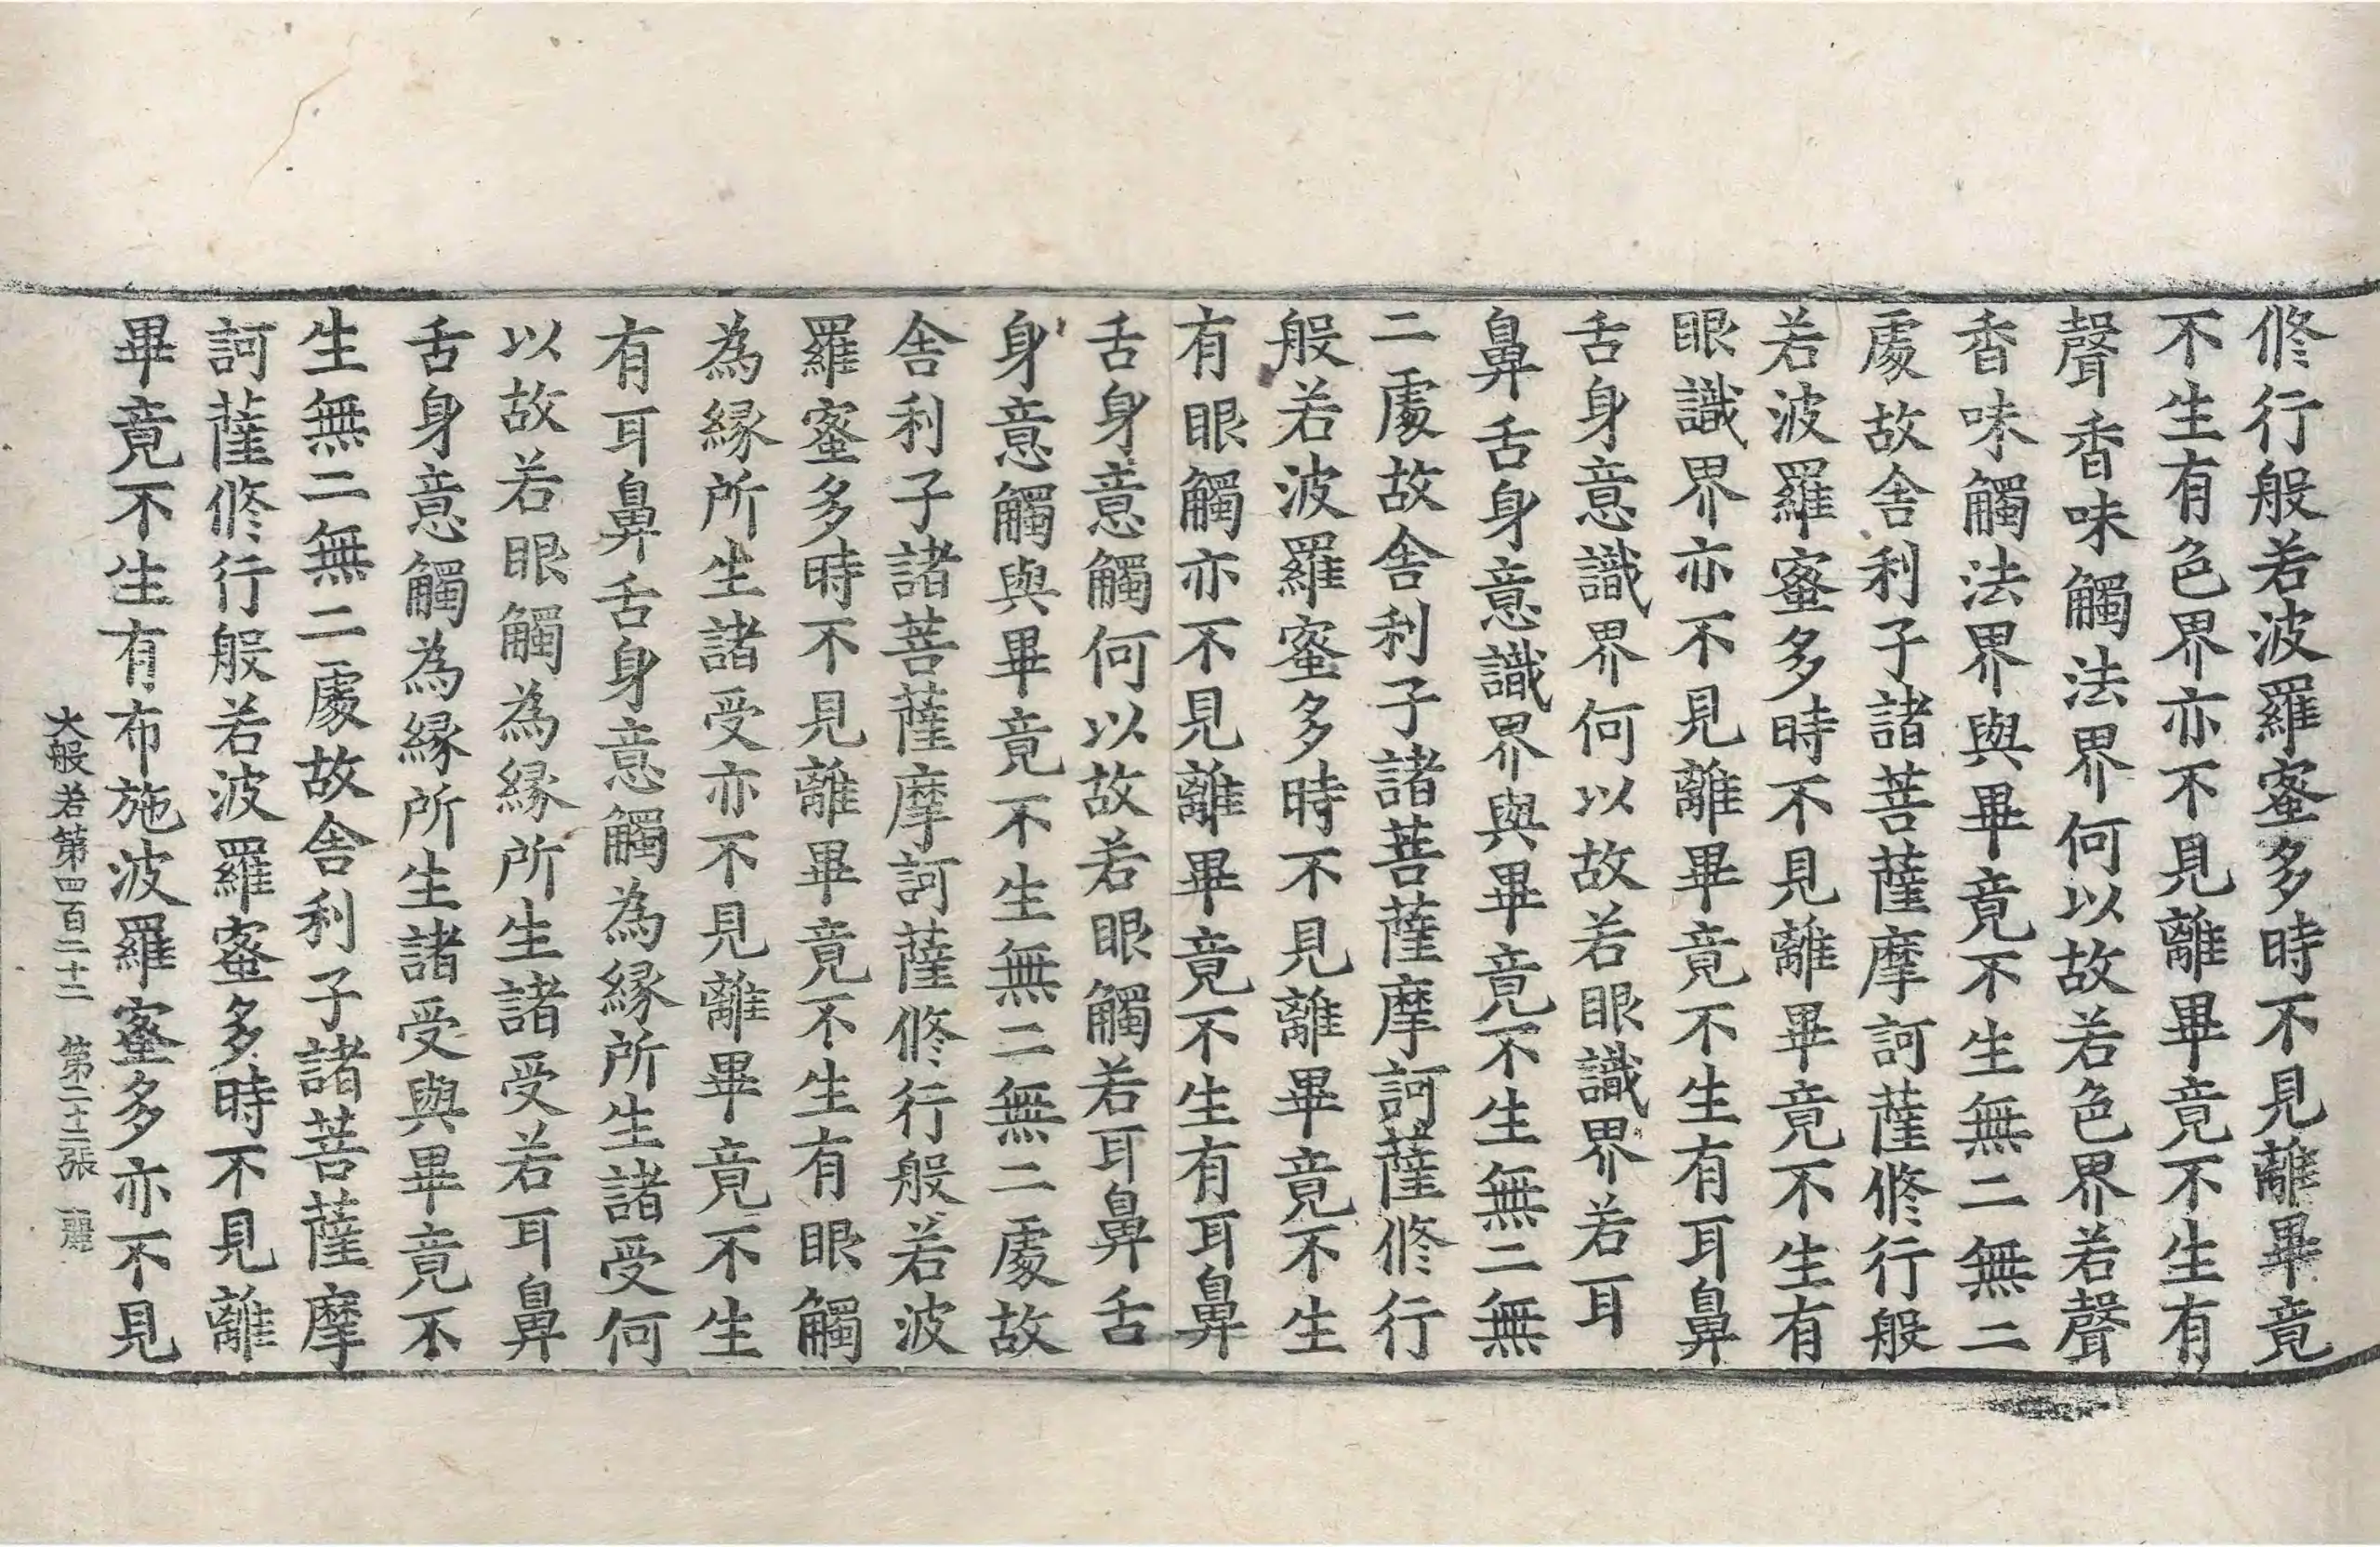 修行般若波羅蜜多時不見離畢竟
不生有色界亦不見離畢竟不生有
聲香味觸法界何以故若色界若聲
香味觸法界與畢竟不生無二無二
處故舍利子諸菩薩摩訶薩修行般
若波羅蜜多時不見離畢竟不生有
眼識界亦不見離畢竟不生有耳鼻
舌身意識界何以故若眼識界若耳
鼻舌身意識界與畢竟不生無二無
二處故舍利子諸菩薩摩訶薩修行
般若波羅蜜多時不見離畢竟不生
有眼觸亦不見離畢竟不生有耳鼻
舌身意觸何以故若眼觸若耳鼻舌
身意觸與畢竟不生無二無二處故
舍利子諸菩薩摩訶薩修行般若波
羅蜜多時不見離畢竟不生有眼觸
為緣所生諸受亦不見離畢竟不生
有耳鼻舌身意觸為緣所生諸受何
以故若眼觸為緣所生諸受若耳鼻
舌身意觸為緣所生諸受與畢竟不
生無二無二處故舍利子諸菩薩摩
訶薩修行般若波羅蜜多時不見離
畢竟不生有布施波羅蜜多亦不見
大般若第四百二十二 第二十二張